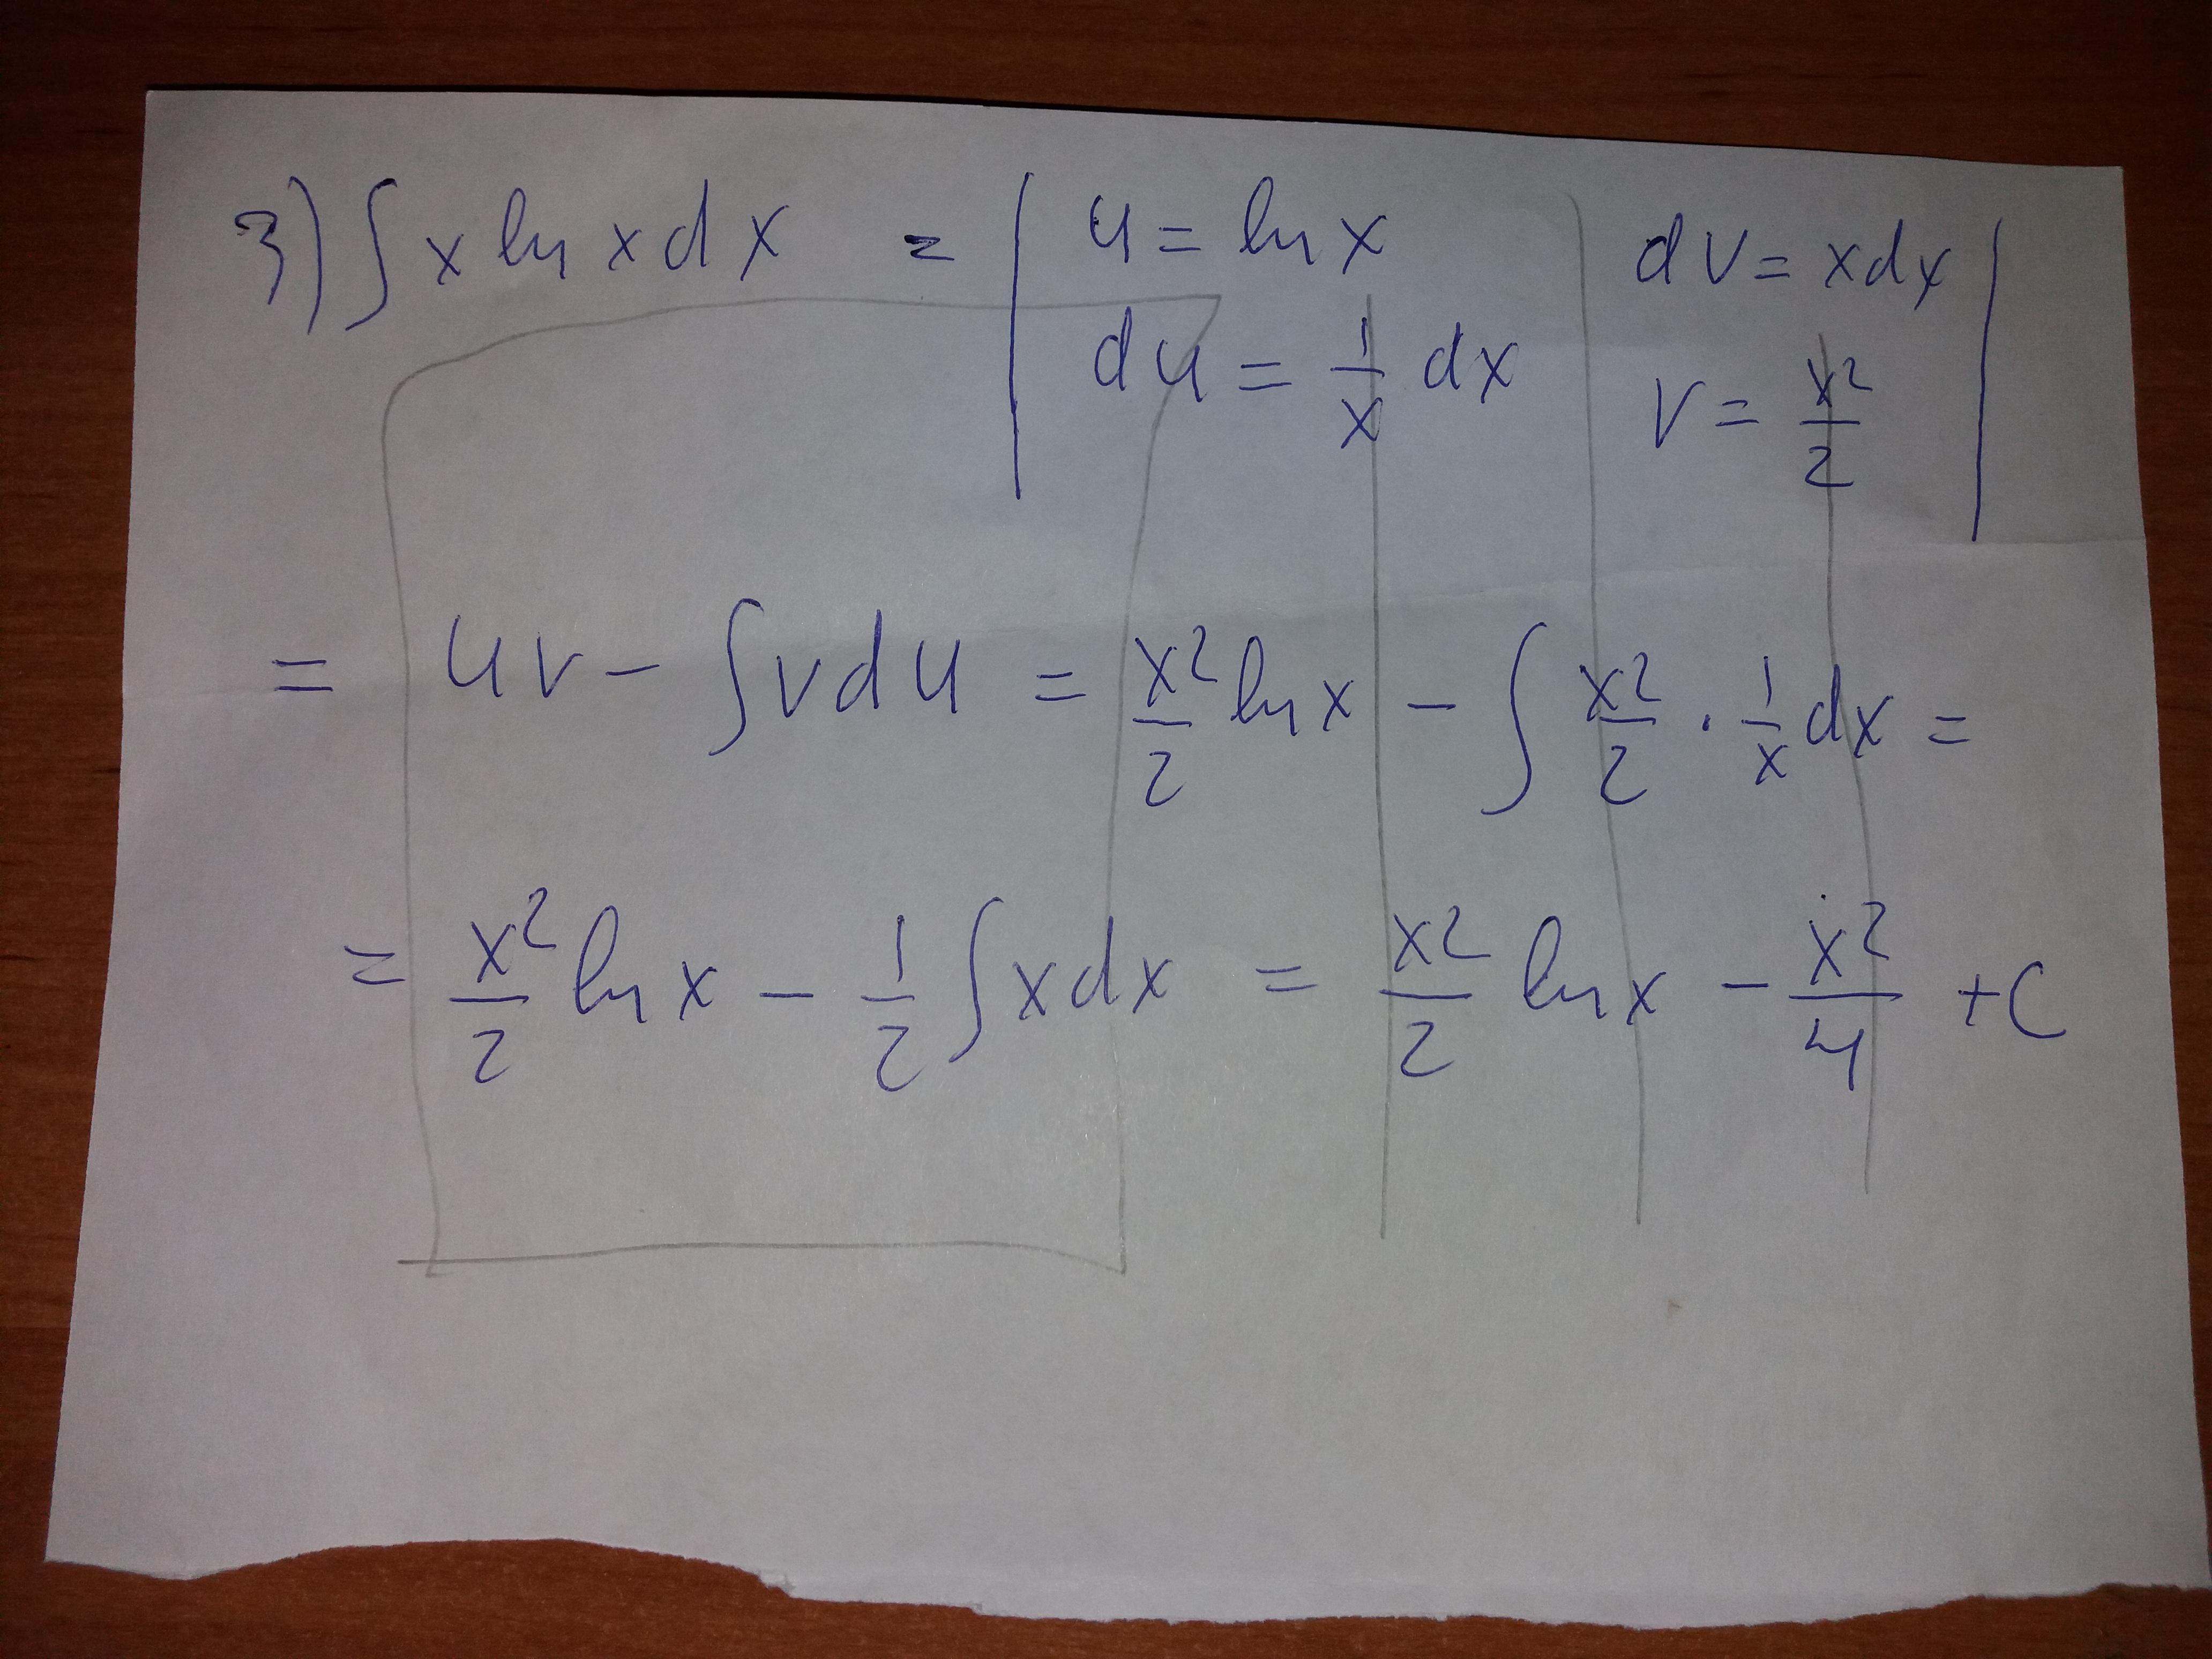 3) ∫ x ln x dx = | u = ln x dv = x dx |
du = 1/x dx v = x²/2
= uv - ∫ v du = x²/2 ln x - ∫ x²/2 · 1/x dx =
= x²/2 ln x - 1/2 ∫ x dx = x²/2 ln x - x²/4 + C